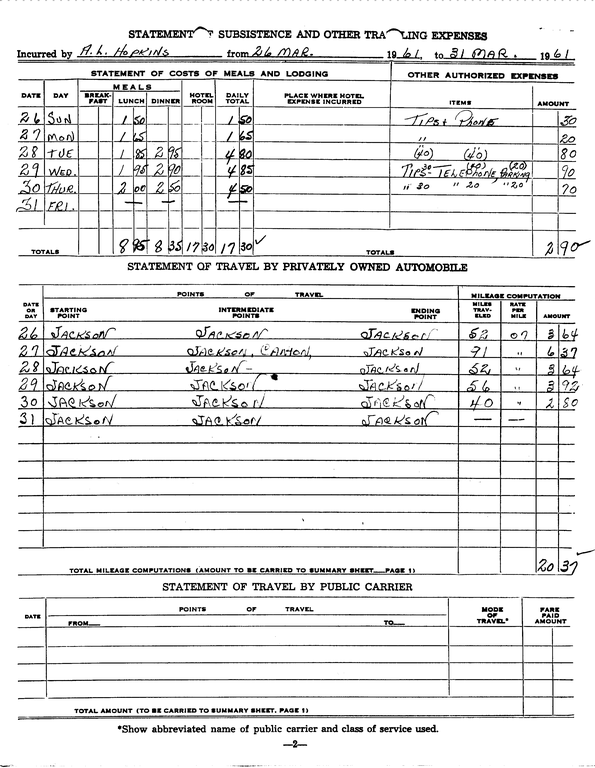 STATEMENT OF SUBSISTENCE AND OTHER TRAVELING EXPENSES
Incurred by A.L. HOPKINS from 26 MAR. 1961, to 31 MAR. 1961
STATEMENT OF COSTS OF MEALS AND LODGING OTHER AUTHORIZED EXPENSES
DATE DAY MEALS BREAK-FAST LUNCH DINNER HOTEL ROOM DAILY TOTAL PLACE WHERE HOTEL EXPENSE INCURRED ITEMS AMOUNT
26 SUN 1 50 1 50 TIPS & PHONE 30
27 MON 1 65 1 65 " 20
28 TUE 1 85 2 95 4 80 (40) (40) 80
29 WED. 1 95 2 90 4 85 TIPS-30 TELEPHONE (40) PARKING (20) 90
30 THUR. 2 00 2 50 4 50 " 30 " 20 " 20" 70
31 FRI. — — —
TOTALS 8 95 8 35 17 30 17 30 TOTALS 2 90
STATEMENT OF TRAVEL BY PRIVATELY OWNED AUTOMOBILE
DATE OR DAY POINTS OF TRAVEL MILEAGE COMPUTATION
STARTING POINT INTERMEDIATE POINTS ENDING POINT MILES TRAV-ELED RATE PER MILE AMOUNT
26 JACKSON JACKSON JACKSON 52 07 3 64
27 JACKSON JACKSON, CANTON, JACKSON 91 " 6 37
28 JACKSON JACKSON - JACKSON 52 " 3 64
29 JACKSON JACKSON JACKSON 56 " 3 92
30 JACKSON JACKSON JACKSON 40 " 2 80
31 JACKSON JACKSON JACKSON — —
TOTAL MILEAGE COMPUTATIONS (AMOUNT TO BE CARRIED TO SUMMARY SHEET—PAGE 1) 20 37
STATEMENT OF TRAVEL BY PUBLIC CARRIER
DATE POINTS OF TRAVEL MODE OF TRAVEL* FARE PAID AMOUNT
FROM— TO—
TOTAL AMOUNT (TO BE CARRIED TO SUMMARY SHEET, PAGE 1)
*Show abbreviated name of public carrier and class of service used.
—2—